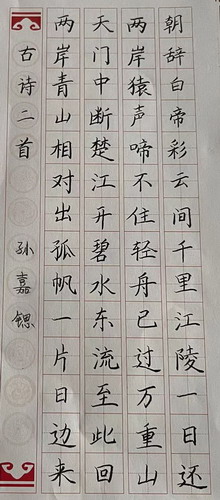 朝辞白帝彩云间千里江陵一日还
两岸猿声啼不住轻舟已过万重山
天门中断楚江开碧水东流至此回
两岸青山相对出孤帆一片日边来
古诗二首 孙嘉锶